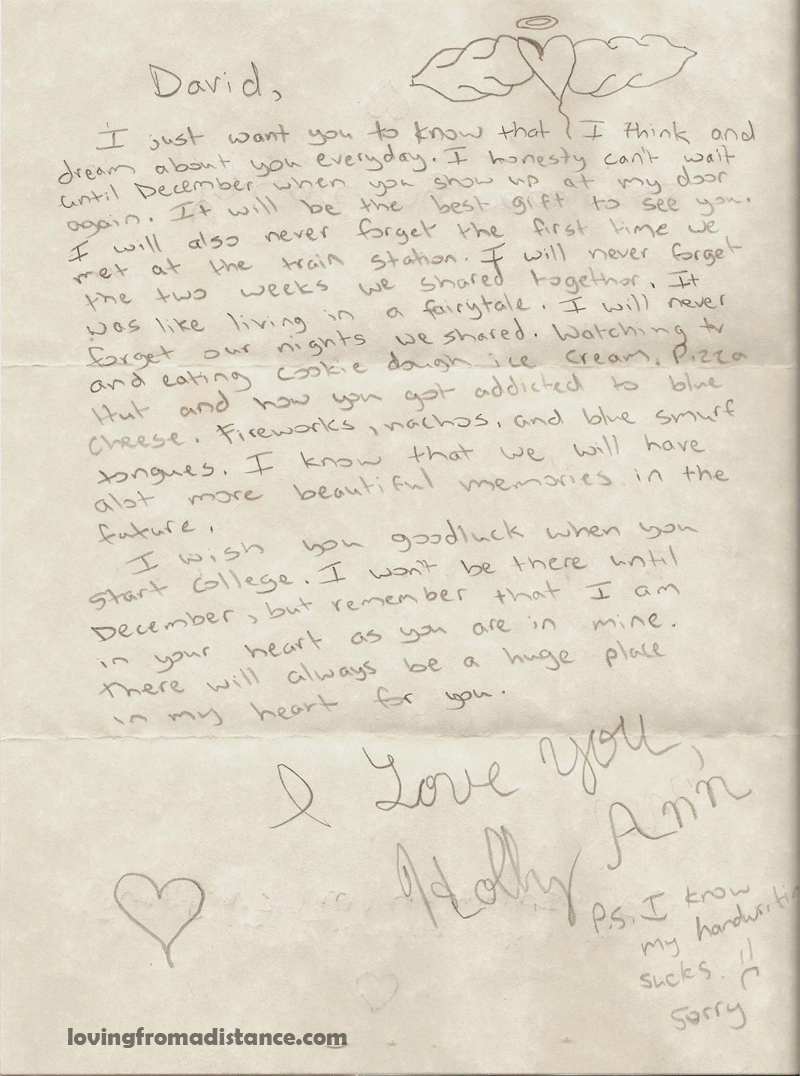 David,
I just want you to know that I think and
dream about you everyday. I honesty can't wait
until December when you show up at my door
again. It will be the best gift to see you.
I will also never forget the first time we
met at the train station. I will never forget
the two weeks we shared together. It
was like living in a fairytale. I will never
forget our nights we shared. Watching tv
and eating cookie dough ice cream. Pizza
Hut and how you got addicted to blue
cheese. Fireworks, nachos, and blue smurf
tongues. I know that we will have
alot more beautiful memories in the
future.
I wish you goodluck when you
start college. I won't be there until
December, but remember that I am
in your heart as you are in mine.
There will always be a huge place
in my heart for you.
I Love You,
Holly Ann
P.S. I know
my handwritin
sucks. =(
Sorry
lovingfromadistance.com